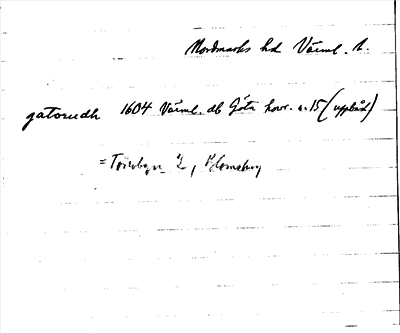 Nordmarks hd Värml. l.
gatorudh 1604 Värml. db Göta hovr. a. 15 (uppbåd)
= Torsbyn 2, Blomskog